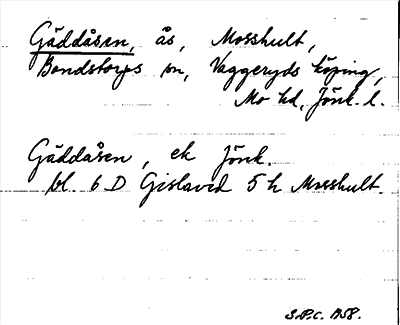 Gäddåsen, ås, Mosshult,
Bondstorps sn, Vaggeryds köping,
Mo hd, Jönk. l.
Gäddåsen, ek Jönk.
bl. 6 D Gislaved 5 h Mosshult.
S.P.C. 1958.